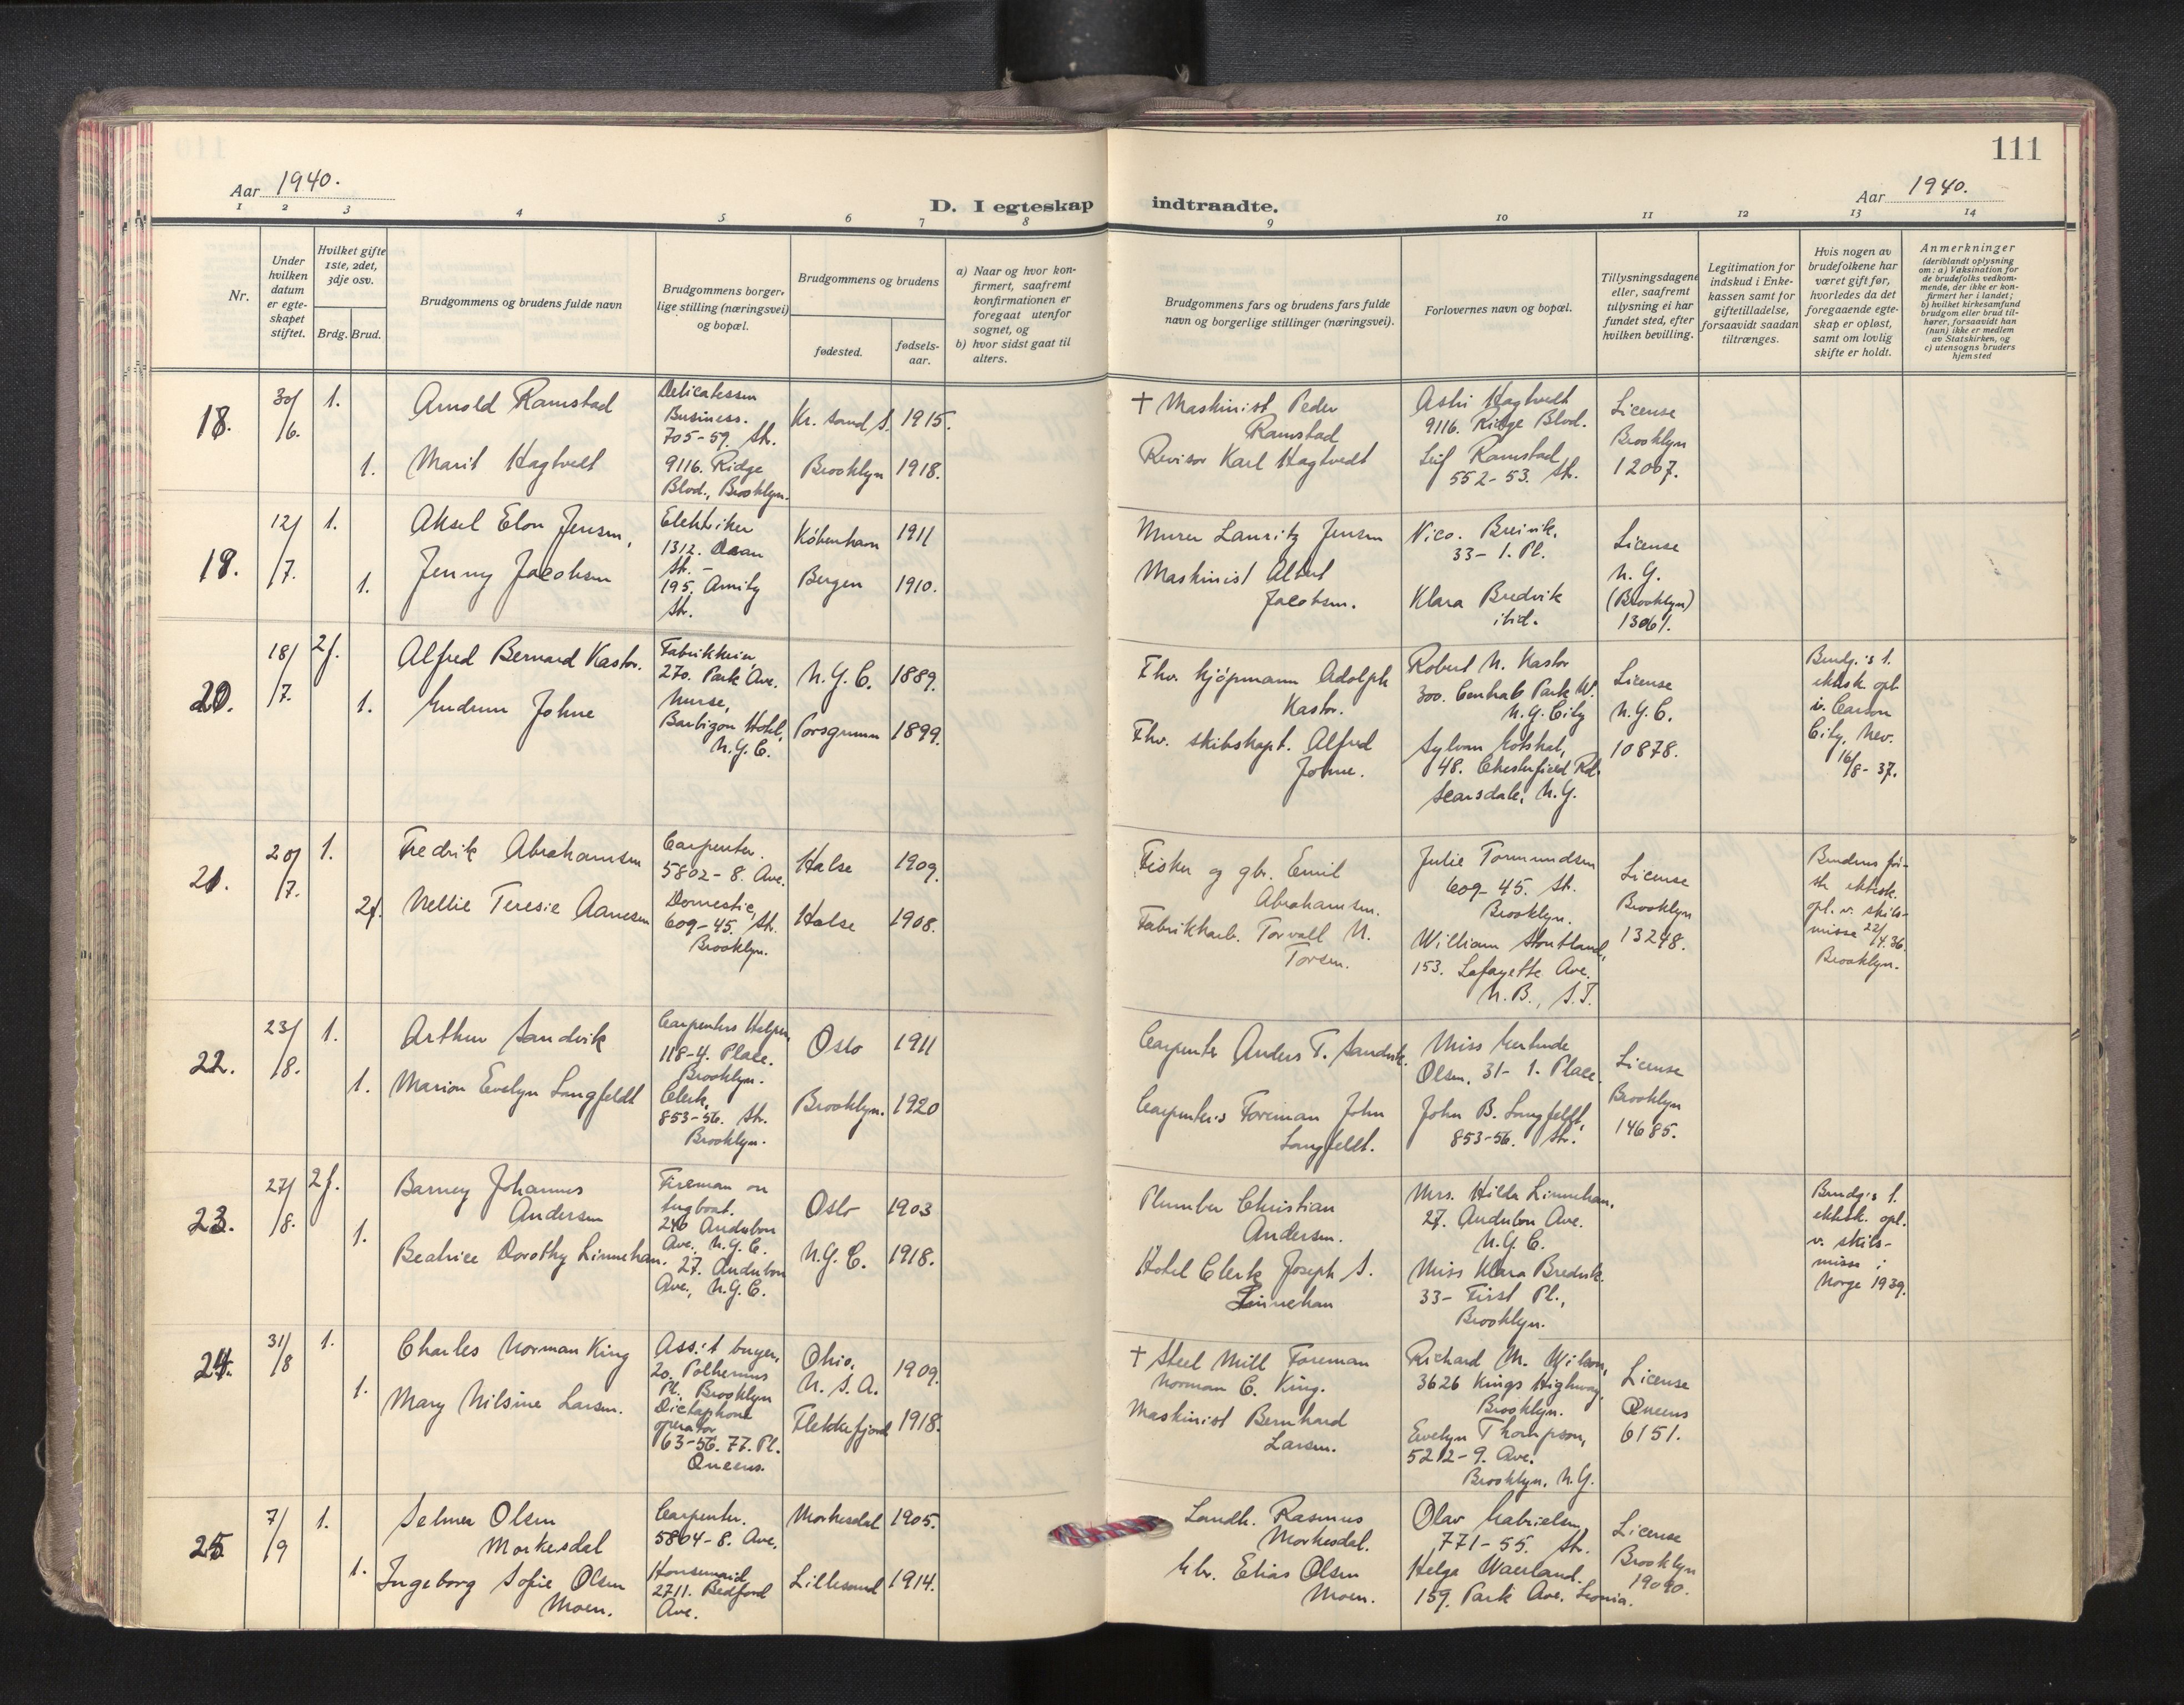 111
Aar 1940.
Aar 1940.
D. I egteskap indtraadte.
1 2 3 4 5 6 7 8 9 10 11 12 13 14
Nr.
Under
hvilken
datum
er egte-
skapet
stiftet.
Hvilket gifte
1ste, 2det,
3dje osv.
Brdg. Brud.
Brudgommens og brudens fulde navn
Brudgommens borger-
lige stilling (næringsvei)
og bopæl.
Brudgommens og brudens
fødested.
fødsels-
aar.
a) Naar og hvor kon-
firmert, saafremt
konfirmationen er
foregaat utenfor
sognet, og
b) hvor sidst gaat til
alters.
Brudgommens fars og brudens fars fulde
navn og borgerlige stillinger (næringsvei).
Forlovernes navn og bopæl.
Tillysningsdagene
eller, saafremt
tillysning ei har
fundet sted, efter
hvilken bevilling.
Legitimation for
indskud i Enke-
kassen samt for
giftetilladelse,
forsaavidt saadan
tiltrænges.
Hvis nogen av
brudefolkene har
været gift før,
hvorledes da det
foregaaende egte-
skap er opløst,
samt om lovlig
skifte er holdt.
Anmerkninger
(deriblandt oplysning
om: a) Vaksination for
de brudefolks vedkom-
mende, der ikke er kon-
firmert her i landet;
b) hvilket kirkesamfund
brudgom eller brud til-
hører, forsaavidt han
(hun) ikke er medlem
av Statskirken, og
c) utensogns bruders
hjemsted
18.
30/
/6.
1.
1.
Arnold Ramstad
Marit Hagtvedt
Delicatessen
Business.
705-59. Str.
9116. Ridge
Blvd., Brooklyn.
Kr. sand S. 1915.
Brooklyn 1918.
† Maskinist Peder
Ramstad
Revisor Karl Hagtvedt
Astri Hagtvedt
9116. Ridge Blvd.
Leif Ramstad
552-53. Str.
License
Brooklyn
12007.
19.
12/
/7.
1.
1.
Aksel Elon Jensen,
Jenny Jacobsen
Elektriker
1312. Dean
Str. -
195. Amity
Str.
København 1911
Bergen 1910.
Murer Lauritz Jensen
Maskinist Albert
Jacobsen.
Nico. Breivik,
33- 1. Pl.
Klara Bredvik
ibid.
License
N.Y.
(Brooklyn)
13061.
20.
18/
/7.
2g.
1.
Alfred Bernard Kastor.
Gudrun Johne
Fabrikkeier,
270. Park Ave.
Nurse,
Barbizon Hotel,
N.Y.C.
N.Y.C. 1889.
Porsgrunn 1899.
Fhv. kjøpmann Adolph
Kastor.
Fhv. skibskapt. Alfred
Johne.
Robert N. Kastor
300. Central Park W.
N.Y. City
Sylvan Gotshal,
48. Chesterfield Rd.
Scarsdale, N.Y.
License
N.Y.C.
10878.
Brudg.'s 1.
ektsk. opl.
i. Carson
City, Nev.
16/8-37.
21.
20/
/7.
1.
2g.
Fredrik Abrahamsen
Nellie Teresie Aanesen
Carpenter.
5802-8. Ave.
Domestic,
609-45. Str.
Brooklyn.
Halse 1909.
Halse 1908.
Fisker og gbr. Emil
Abrahamsen.
Fabrikkarb. Torvall N.
Torsen.
Julie Tormundsen
609-45. Str.
Brooklyn.
William Stoutland,
153. Lafayette Ave.
N.B., S.I.
License
Brooklyn
13248.
Brudens før-
ste ektesk.
opl. v. skils-
misse 22/4.36.
Brooklyn.
22.
23/
/8.
1.
1.
Arthur Sandvik
Marion Evelyn Langfeldt
Carpenters Helper,
118-4. Place.
Brooklyn.
Clerk,
853-56. Str.
Brooklyn.
Oslo 1911
Brooklyn. 1920
Carpenter Anders T. Sandvik.
Carpenter's Foreman John
Langfeldt.
Miss Gertrude
Olsen, 31- 1. Place.
John B. Langfeldt,
853-56. Str.
License
Brooklyn
14685.
23.
27/
/8.
2g.
1.
Barney Johannes
Andersen
Beatrice Dorothy Linnehan.
Fireman on
tugboat.
240 Audubon
Ave. N.Y.C.
27. Audubon
Ave., N.Y.C.
Oslo 1903
N.Y.C. 1918.
Plumber Christian
Andersen.
Hotel Clerk Joseph S.
Linnehan
Mrs. Hilda Linnehan.
27. Audubon Ave.
N.Y.C.
Miss Klara Bredvik.
33- First Pl.,
Brooklyn.
Brudg's 1.
ektsk. opl.
v. skils-
misse i
Norge 1939.
24.
31/
/8
1.
1.
Charles Norman King
Mary Nilsine Larsen.
Ass.'t buyer,
20. Polhemus
Pl. Brooklyn
Dictaphone
operator
63-56. 77. Pl.
Queens.
Ohio,
U.S.A. 1909.
Flekkefjord 1918.
† Steel Mill Foreman
Norman C. King.
Maskinist Bernhard
Larsen.
Richard M. Wilson,
3626 Kings Highway,
Brooklyn.
Evelyn Thompson,
5212-9. Ave.
Brooklyn. N.Y.
License
Queens
6151.
25
7/
/9
1.
1.
Selmer Olsen
Morkesdal
Ingeborg Sofie Olsen
Moen.
Carpenter.
5804-8. Ave.
Housemaid,
2711. Bedford
Ave.
Morkesdal 1905.
Lillesand 1914.
Landh. Rasmus
Morkesdal.
Gbr. Elias Olsen
Moen.
Olav Gabrielsen,
771-55. Str.
Helga Waerland.
159. Park Ave. Leonia.
License
Brooklyn
19090.